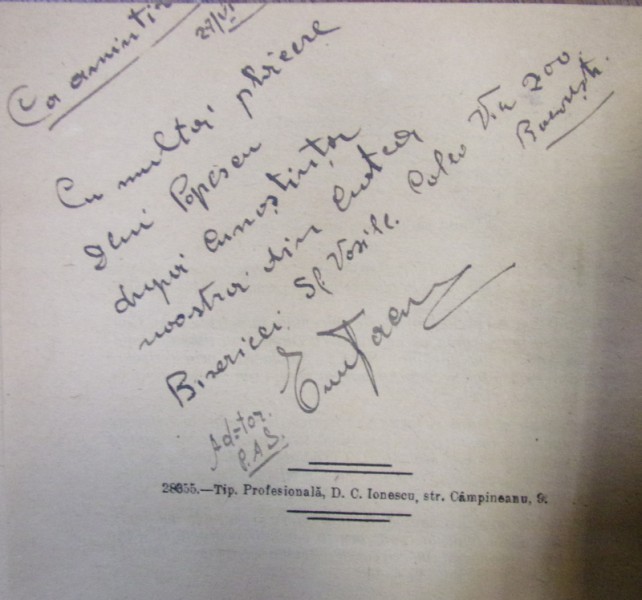 Ca amintir
27/VI
Cu multă plăcere
Dlui Popescu
după cunoștința
noastră din curtea
Bisericei Sf Vasile. Calea Vic 200
București.
Ad-tor.
P.A.S.
28655.—Tip. Profesională, D. C. Ionescu, str. Câmpineanu, 9.